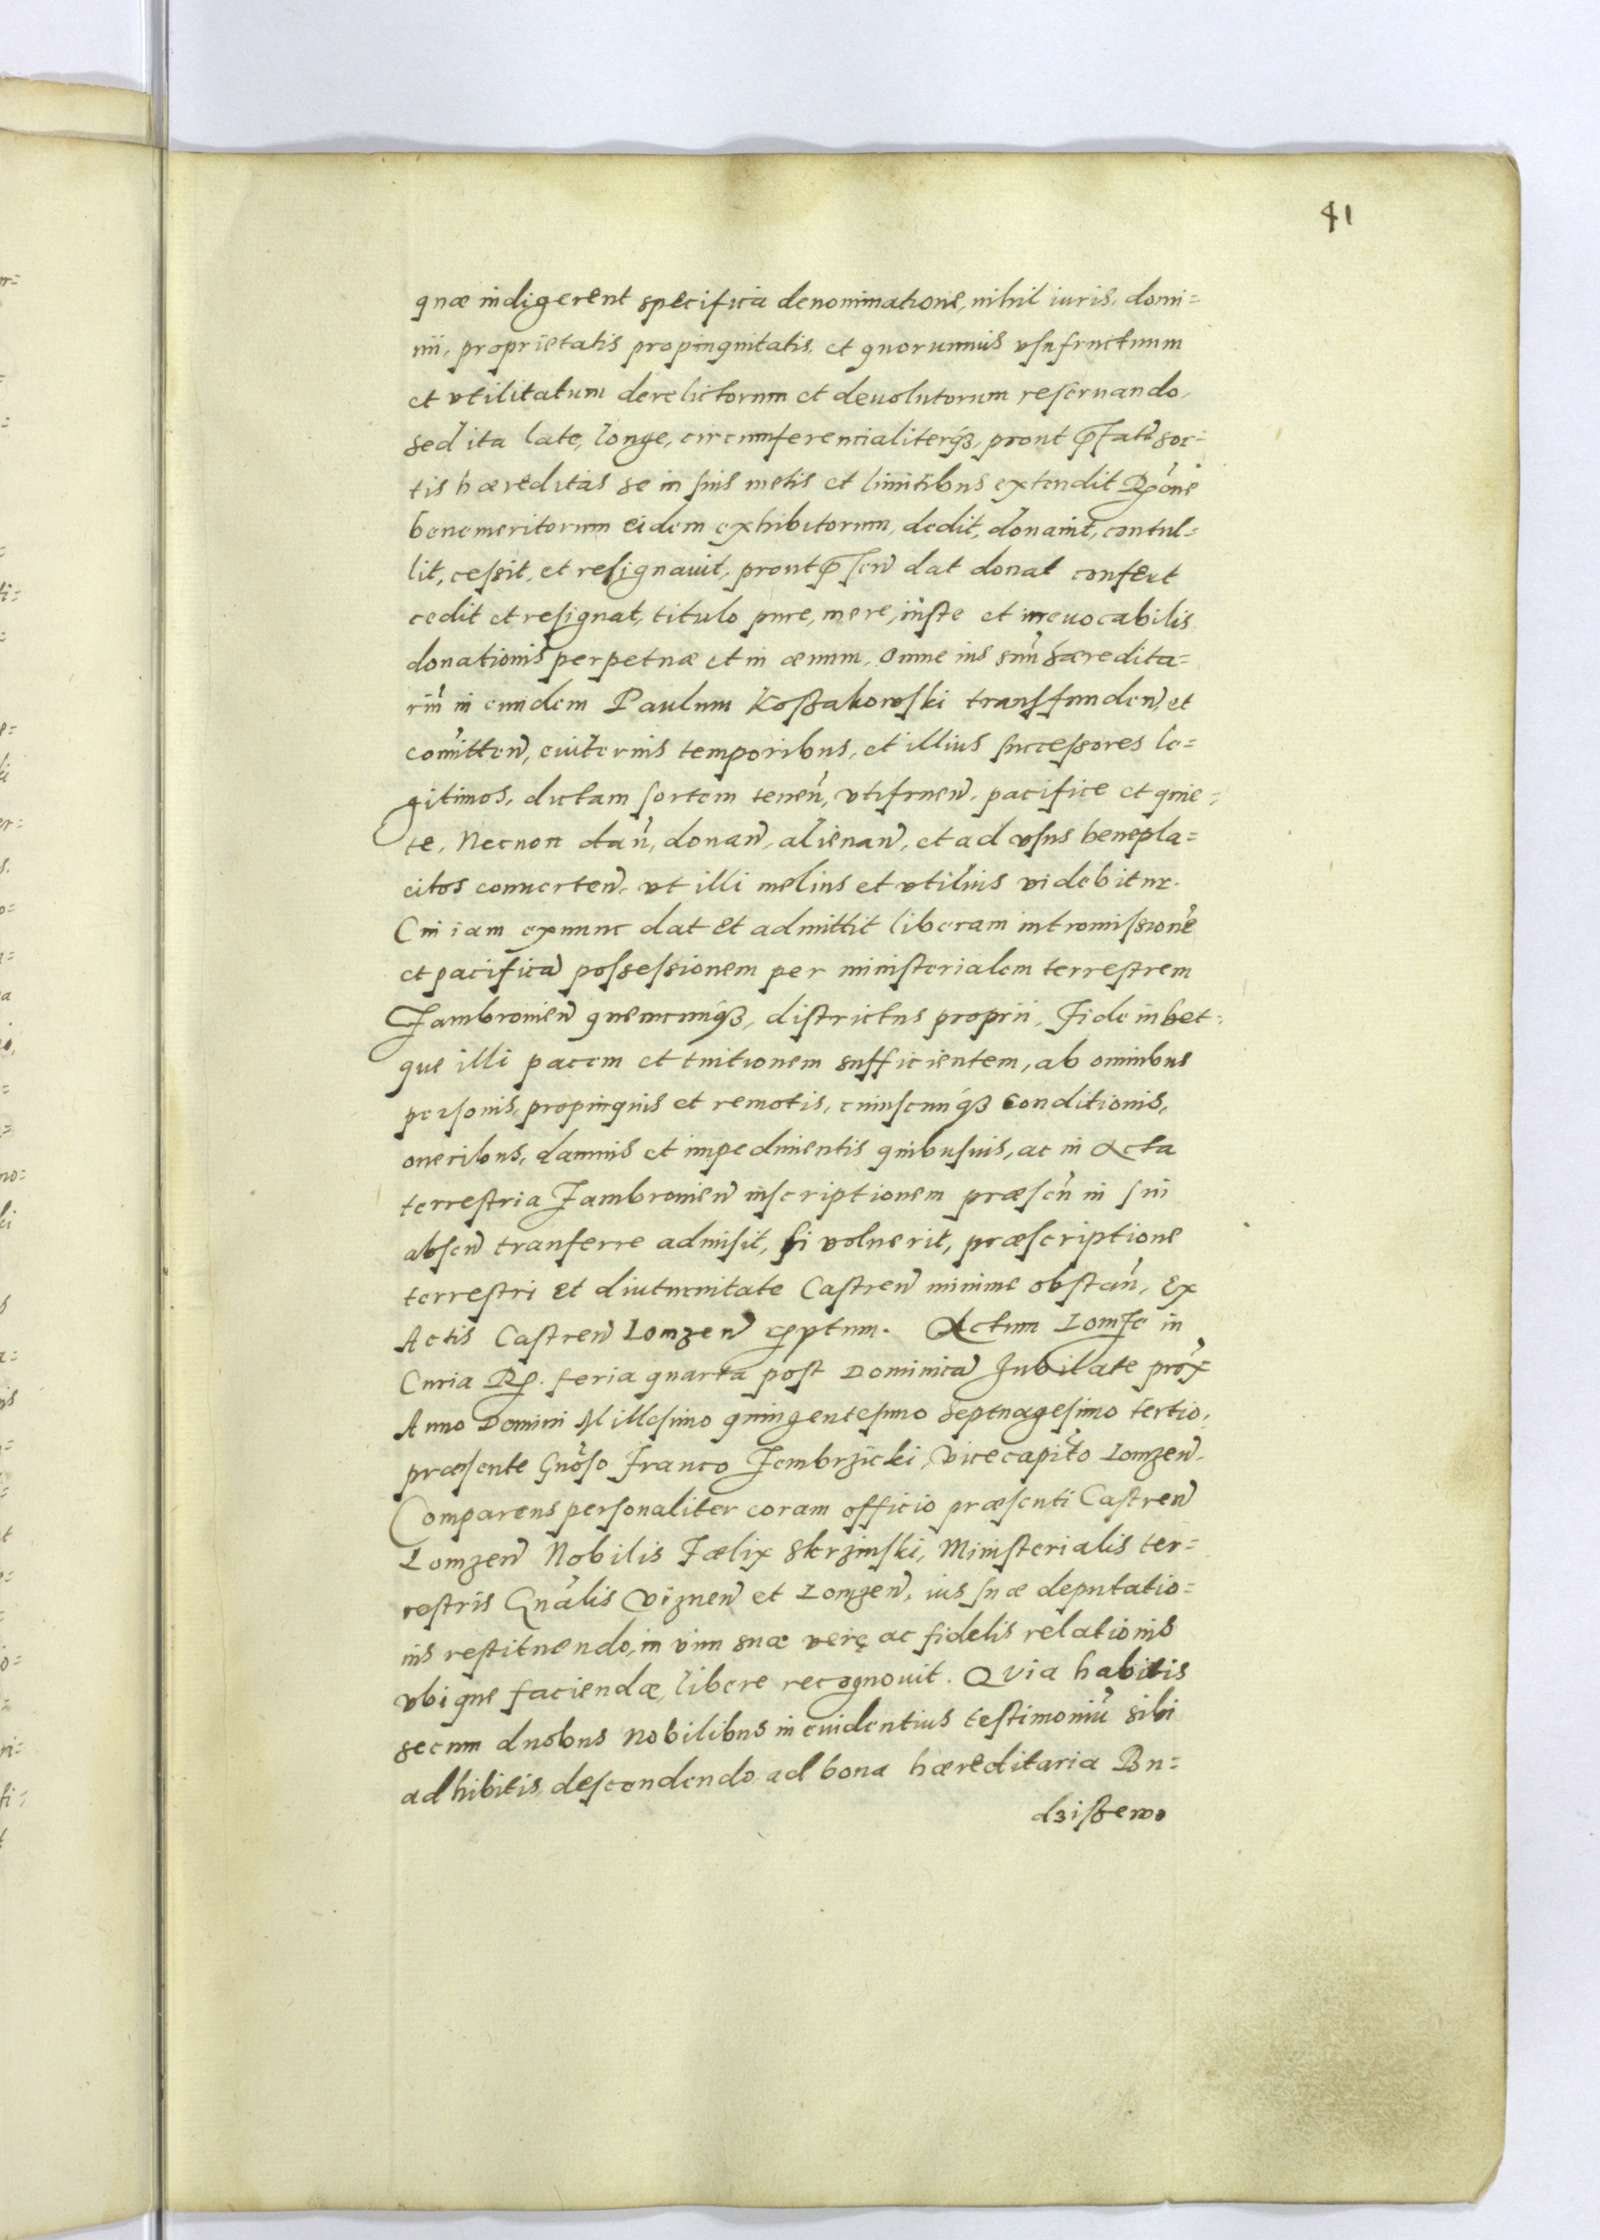 41
quæ indigerent specifica denominatione, nihil iuris, domi=
nii, proprietatis propinquitatis, et quorumuis vsufructuum
et vtilitatum derelictorum et deuolutorum reseruando,
sed ita late, longe, circumferencialiterq3, prout p̄fatæ sor=
tis hæreditas se in suis metis et limitibus extendit Rōne
benemeritorum eidem exhibitorum, dedit, donauit, contul=
lit, cessit, et resignauit, prout p̄sen̄ dat donat confert
cedit et resignat, titulo pure, mere, iuste et irreuocabilis
donationis perpetuæ et in æuum, omne ius suū hæredita=
riū in eundem Paulum Koßakowski transfunden̄, et
comītten̄, euiternis temporibus, et illius successores le=
gitimos, dictam sortem tenen̄, vtifruen̄, pacifice et quie=
te, Necnon dan̄, donan̄, alienan̄, et ad vsus benepla=
citos conuerten̄, vt illi melius et vtilius videbitur.
Cui iam exnunc dat et admittit liberam intromissionē
et pacificā possessionem per ministerialem terrestrem
Zambrouien̄ quemcunq3, districtus proprii, Fide iubet=
que illi pacem et tuitionem sufficientem, ab omnibus
personis, propinquis et remotis, cuiuscunq3 conditionis,
oneribus, damnis et impedimentis quibusuis, ac in Acta
terrestria Zambrouien̄ inscriptionem præsen̄ in sui
absen̄ tranferre admisit, si voluerit, præscriptione
terrestri et diuturnitate Castren̄ minime obstan̄, Ex
Actis Castren̄ Lomzen̄ rptum. Actum Lomze in
Curia R. feria quarta post Dominicā Jubilate prox̄
Anno Domini Millesimo quingentesimo septuagesimo tertio,
præsente Gnōso Franco Zembrzicki, Vicecapito Lomzen̄.
Comparens personaliter coram officio præsenti Castren̄
Lomzen̄ Nobilis Fælix Skrzinski, Ministerialis ter=
restris Gnālis Viznen̄ et Lomzen̄, ius suæ deputatio=
nis restituendo, in vim suæ veræ ac fidelis relationis
vbique faciendæ, libere recognouit. Quia habitis
secum duobus Nobilibus in euidentius testimoniū sibi
adhibitis, descendendo ad bona hæreditaria Bu=
dzißewo